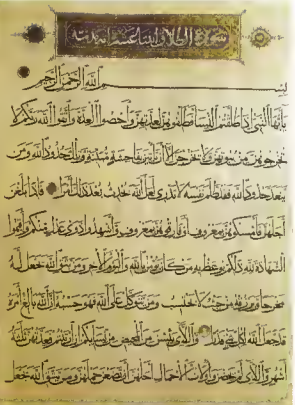 سورة الطلاق اثنتا عشرة آية مدنية
بسم الله الرحمن الرحيم
يا أيها النبي إذا طلقتم النساء فطلقوهن لعدتهن وأحصوا العدة واتقوا الله ربكم لا
تخرجوهن من بيوتهن ولا يخرجن إلا أن يأتين بفاحشة مبينة وتلك حدود الله ومن
يتعد حدود الله فقد ظلم نفسه لا تدري لعل الله يحدث بعد ذلك أمرا فإذا بلغن
أجلهن فأمسكوهن بمعروف أو فارقوهن بمعروف وأشهدوا ذوي عدل منكم وأقيموا
الشهادة لله ذلكم يوعظ به من كان يؤمن بالله واليوم الآخر ومن يتق الله يجعل له
مخرجا ويرزقه من حيث لا يحتسب ومن يتوكل على الله فهو حسبه إن الله بالغ أمره
قد جعل الله لكل شيء قدرا واللائي يئسن من المحيض من نسائكم إن ارتبتم فعدتهن ثلاثة
أشهر واللائي لم يحضن وأولات الأحمال أجلهن أن يضعن حملهن ومن يتق الله يجعل